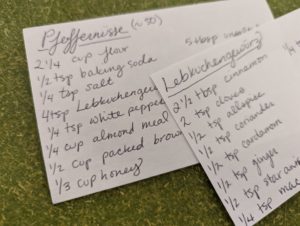 Pfeffernisse (~50)
2 1/4 cup flour
1/2 tsp baking soda
1/4 tsp salt
4 tsp Lebkuchengew
1/4 tsp white pepper
1/4 cup almond meal
1/2 cup packed brow
1/3 cup honey
5 tbsp
Lebkuchengewürz
2 1/2 tbsp cinnamon
2 tsp cloves
1/2 tsp allspice
1/2 tsp coriander
1/2 tsp cardamom
1/2 tsp ginger
1/2 tsp star anis
1/4 tsp mac
1/4